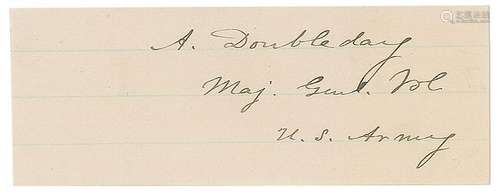 A. Doubleday
Maj. Genl. Vol
U. S. Army